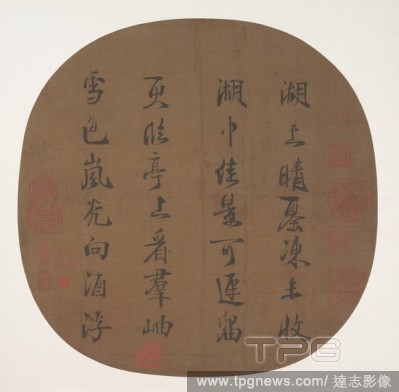 湖上晴凍未收
湖中佳景可遲留
更臨亭上看羣岫
雪色嵐光向酒浮
TPG
www.tpgnews.com / 達志影像